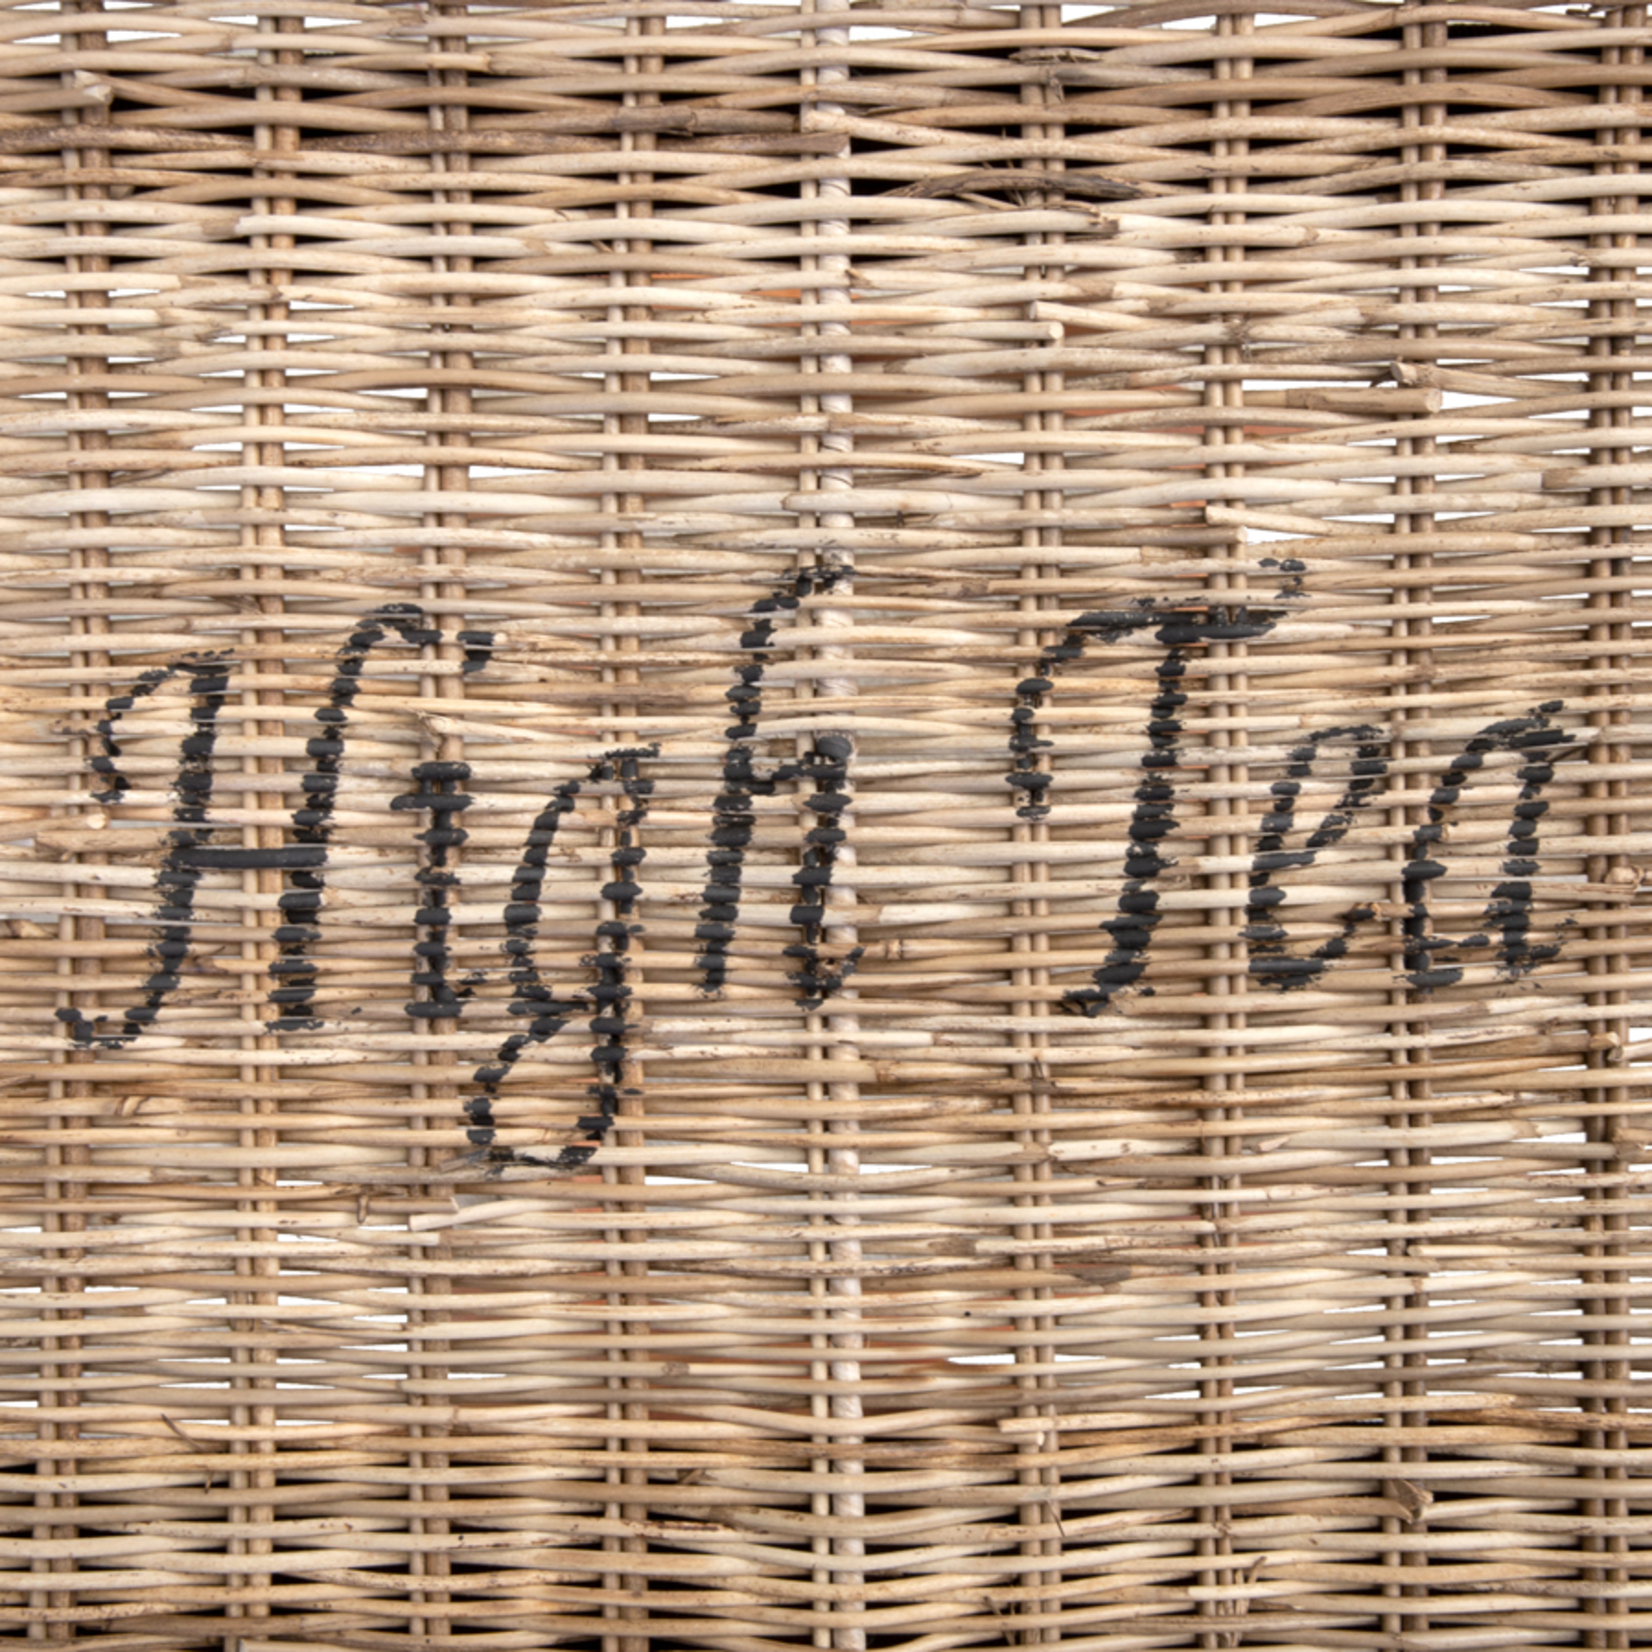 High Tea